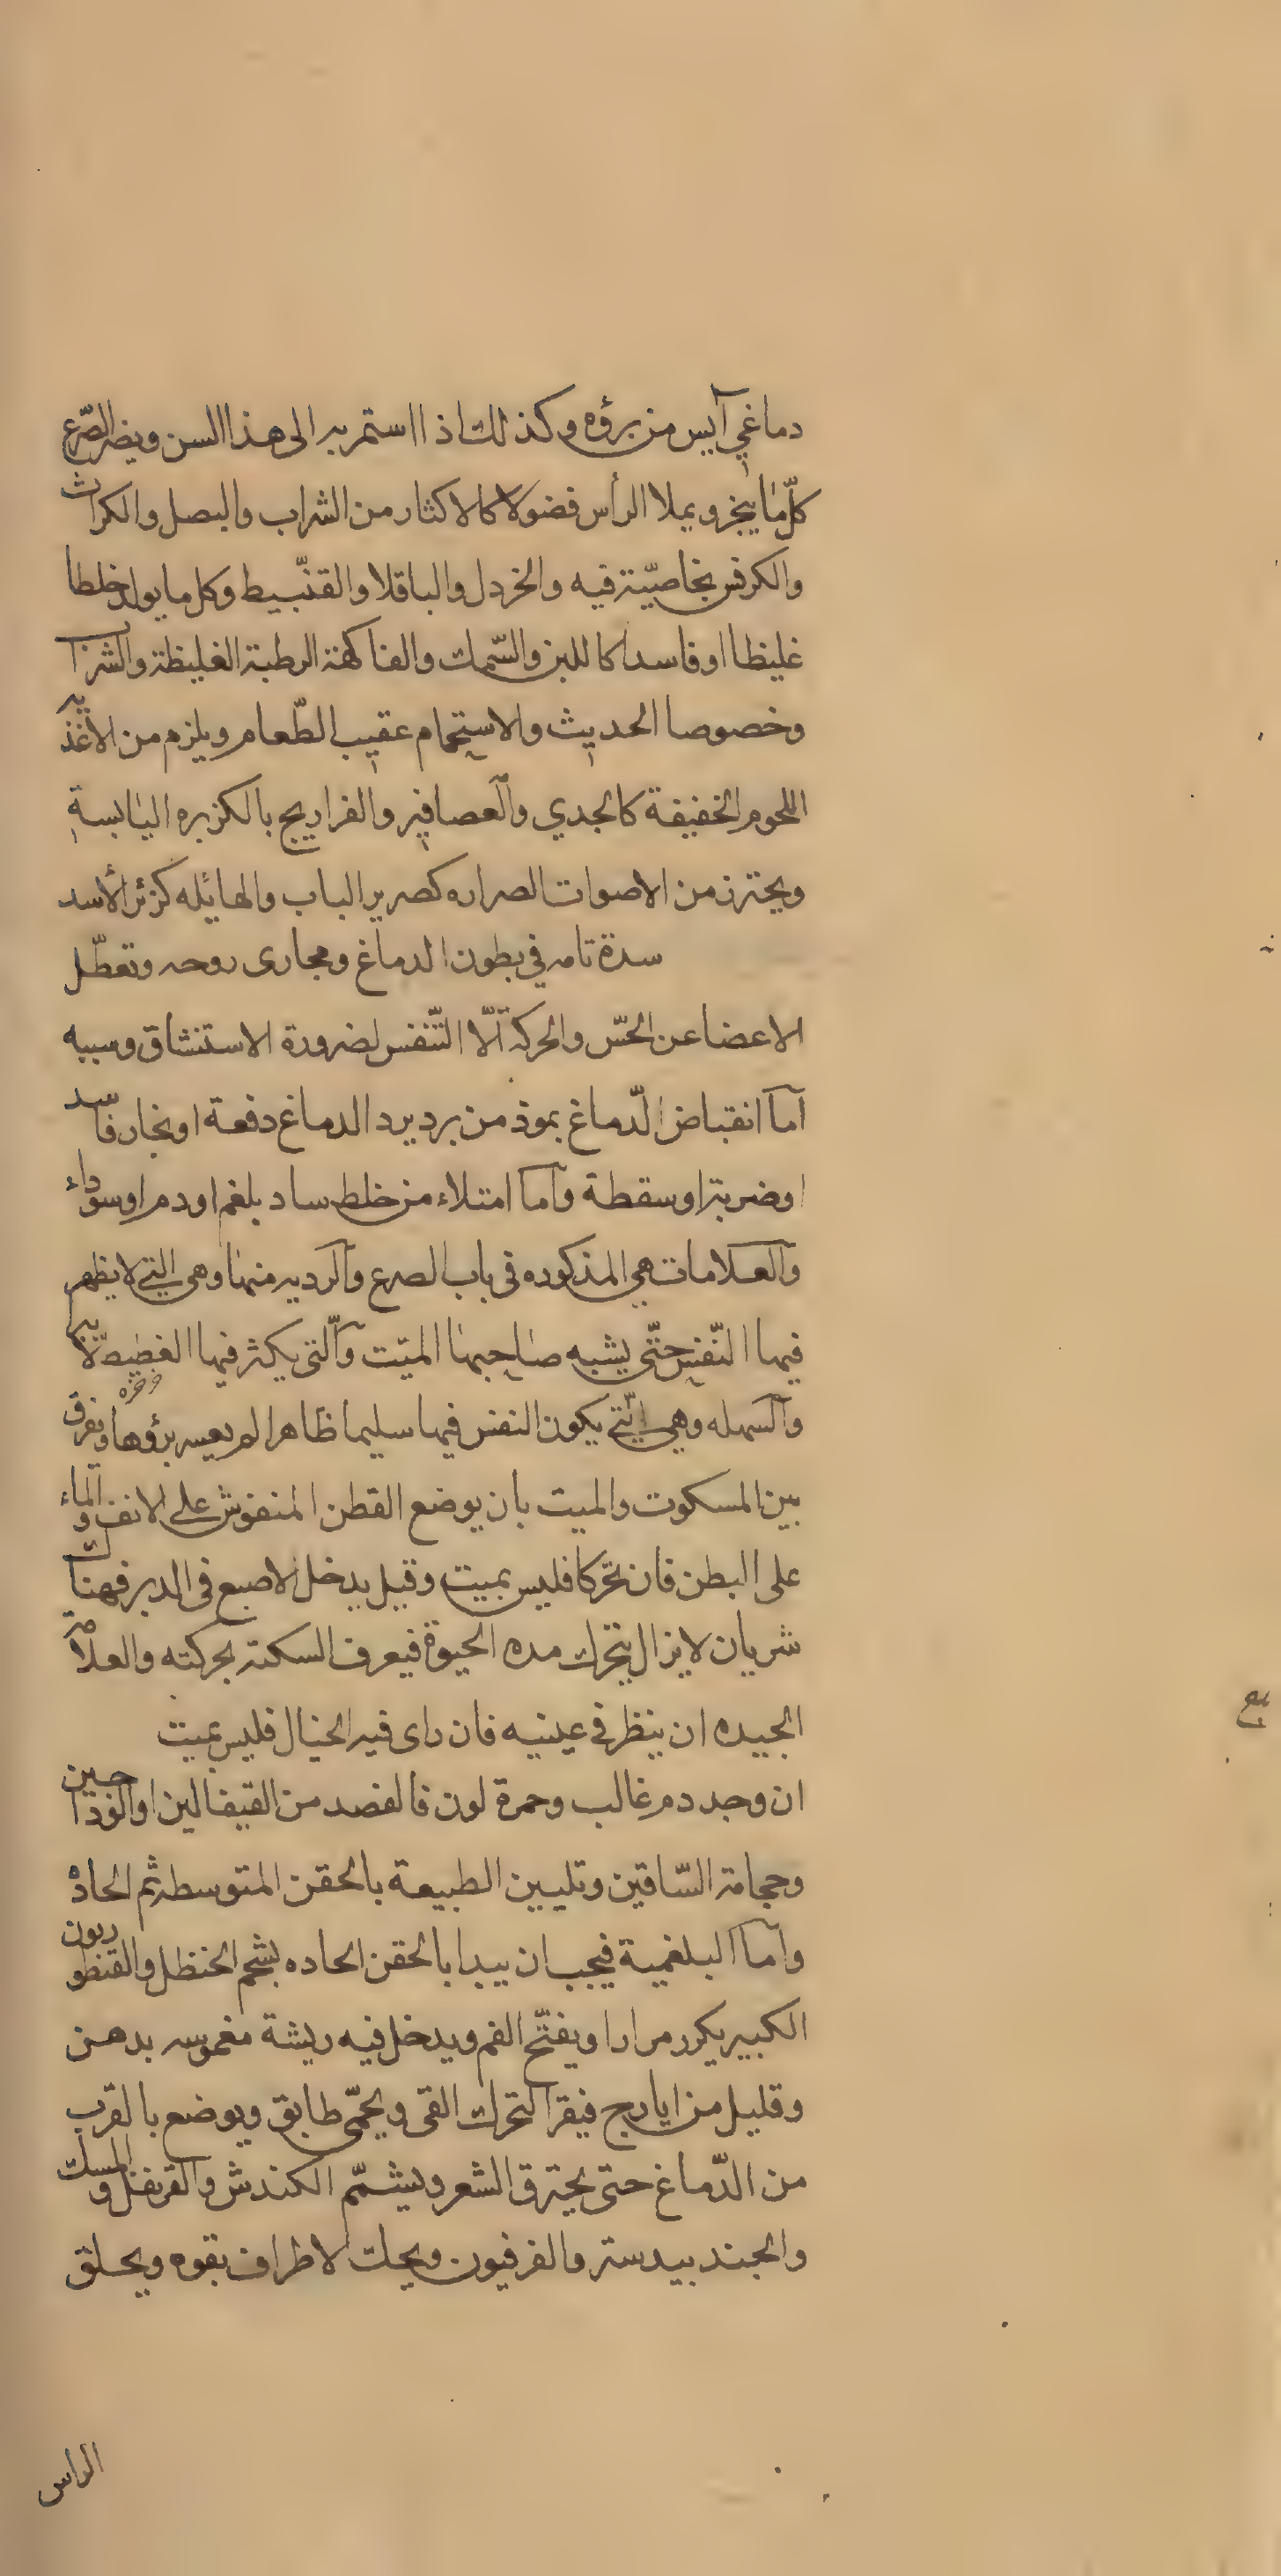 دماغي آيس من برؤه وكذلك اذا استمر به الى هذا السن ويضر الصّرع
كلّ ما يبخر ويملا الرأس فضولا كالاكثار من الشراب والبصل والكراث
والكرفس بخاصيّة فيه والخردل والباقلا والقنّبيط وكل ما يولد خلطا
غليظا او فاسدا كاللبن والسّمك والفاكهة الرطبة الغليظة والشراب
وخصوصا الحديث والاستحمام عقيب الطّعام ويلزم من الاغذيه
اللحوم الخفيفة كالجدي والعصافير والفراريج بالكزبره اليابسة
ويحترز من الاصوات الصراره كصرير الباب والهائله كزئر الأسد
سدة تامه في بطون الدماغ ومجارى روحه وتعطّل
الاعضا عن الحسّ والحركة الّا التّنفس لضرورة الاستنشاق وسببه
اما انقباض الدّماغ بموذ من برد يرد الدماغ دفعة او بخار فاسد
او ضربة او سقطة واما امتلاء من خلط ساد بلغم او دم او سوداء
والعلامات هي المذكوره في باب الصرع والرديه منها وهي التي لا يظهر
فيها النّفس حتّى يشبه صاحبها الميّت والّتى يكثر فيها الغطيط لا يبر
والسهله وهي الّتي يكون النفس فيها سليما ظاهرا لم يعسر برؤها ويفرق
بين المسكوت والميت بان يوضع القطن المنفوش على الانف والماء
على البطن فان تحركا فليس بميت وقيل يدخل الاصبع في الدبر فهناك
شريان لا يزال يتحرك مده الحيوة فيعرف السكتة بحركته والعلامة
الجيده ان ينظر في عينيه فان راى فيه الخيال فليس بميت
ان وجد دم غالب وحمرة لون فالفصد من القيفالين او الوداجين
وحجامة السّاقين وتليين الطبيعة بالحقن المتوسطه ثم الحادة
واما البلغمية فيجب ان يبدا بالحقن الحاده بشحم الحنظل والقنطوريون
الكبير يكرر مرارا ويفتّح الفم ويدخل فيه ريشة مغموسه بدهن
وقليل من ايارج فيقرا لتحرك القى ويحمّى طابق ويوضع بالقرب
من الدّماغ حتى يحترق الشعر ويشمّم الكندش والقرنفل والمسك
والجندبيدستر والفرفيون ويحك الاطراف بقوه ويحلق
الراس